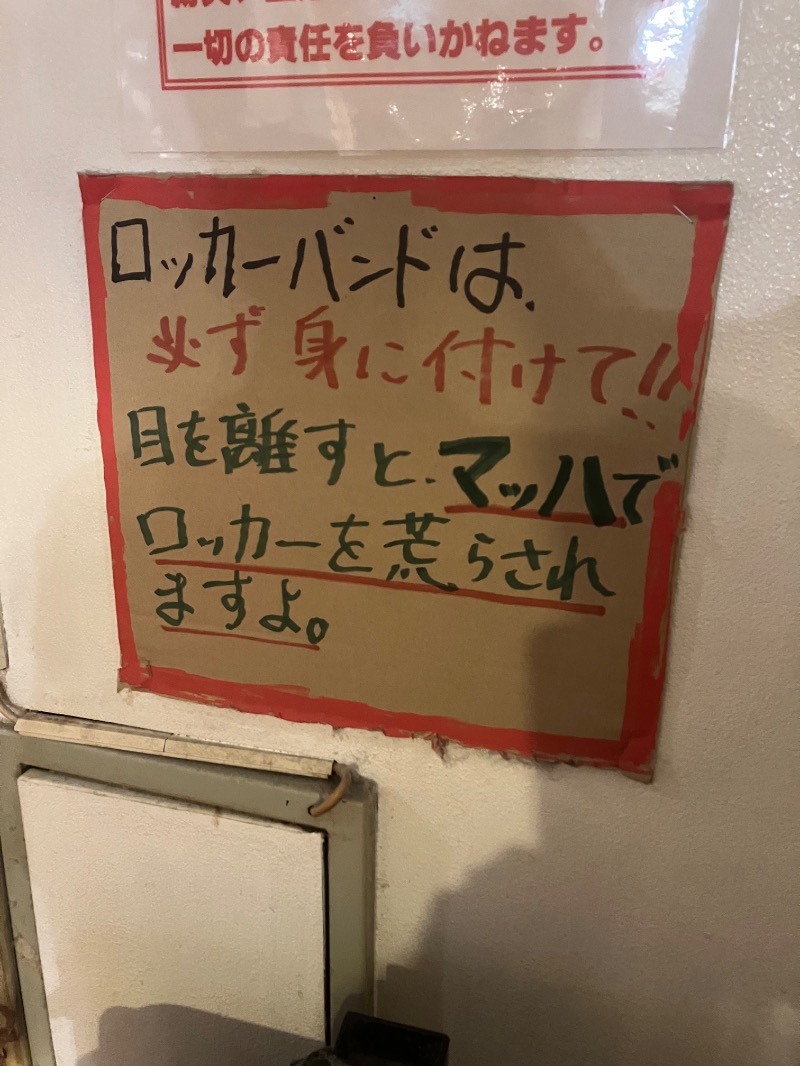 一切の責任を負いかねます。
ロッカーバンドは、
必ず身に付けて!!
目を離すと、マッハで
ロッカーを荒らされ
ますよ。